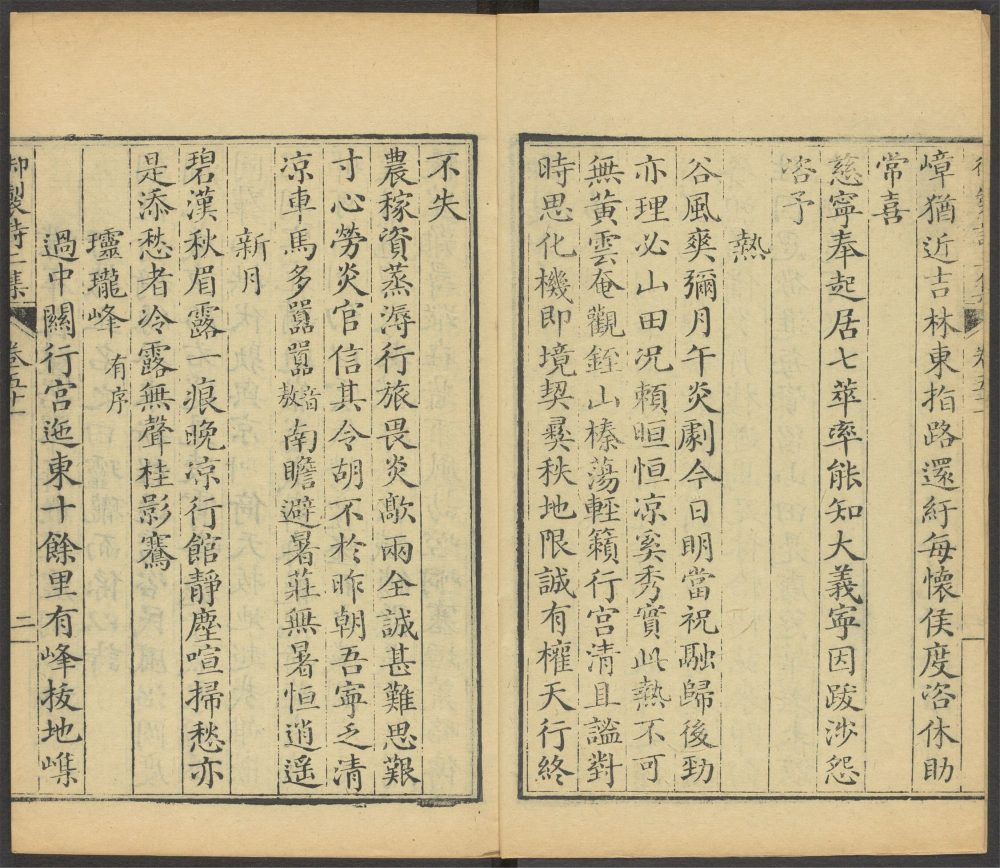 嶂猶近吉林東指路還紆每懷侯度咨休助
常喜
慈寧奉起居七萃率能知大義寧因跋涉怨
咨予
熱
谷風爽彌月午炎劇今日明當祝融歸後勁
亦理必山田况頼晅恒凉奚秀實此熱不可
無黃雲奄觀銍山榛蕩輕籟行宫清且謐對
時思化機即境契彛秩地限誠有權天行終
不失
農稼資蒸溽行旅畏炎歊兩全誠甚難思艱
寸心勞炎官信其令胡不於昨朝吾寧乏清
凉車馬多囂囂音敖南瞻避暑莊無暑恒逍遥
新月
碧漢秋眉露一痕晚凉行館靜塵喧掃愁亦
是添愁者冷露無聲桂影騫
瓊瓏峰有序
過中關行宫迤東十餘里有峰拔地嶫
御製詩二集
卷五十一
二